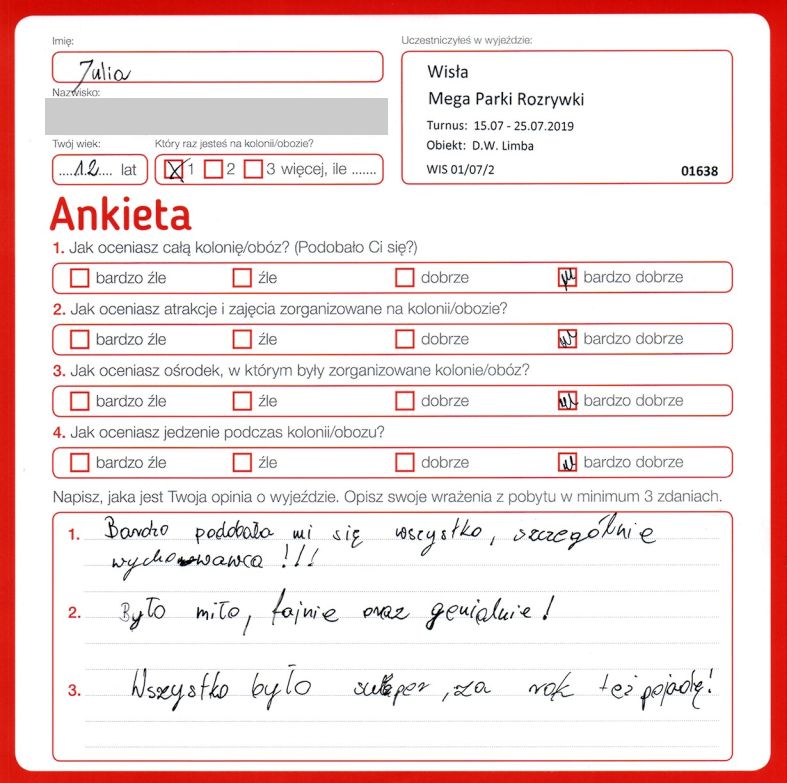 Imię:
Julia
Nazwisko:
Twój wiek:
12 lat
Który raz jesteś na kolonii/obozie?
1 2 3 więcej, ile .......
Uczestniczyłeś w wyjeździe:
Wisła
Mega Parki Rozrywki
Turnus: 15.07 - 25.07.2019
Obiekt: D.W. Limba
WIS 01/07/2 01638
Ankieta
1. Jak oceniasz całą kolonię/obóz? (Podobało Ci się?)
bardzo źle źle dobrze bardzo dobrze
2. Jak oceniasz atrakcje i zajęcia zorganizowane na kolonii/obozie?
bardzo źle źle dobrze bardzo dobrze
3. Jak oceniasz ośrodek, w którym były zorganizowane kolonie/obóz?
bardzo źle źle dobrze bardzo dobrze
4. Jak oceniasz jedzenie podczas kolonii/obozu?
bardzo źle źle dobrze bardzo dobrze
Napisz, jaka jest Twoja opinia o wyjeździe. Opisz swoje wrażenia z pobytu w minimum 3 zdaniach.
1. Bardzo podobała mi się wszystko, szczególnie
wychowawca !!!
2. Było miło, fajnie oraz genialnie!
3. Wszystko było super, za rok też pojadę!